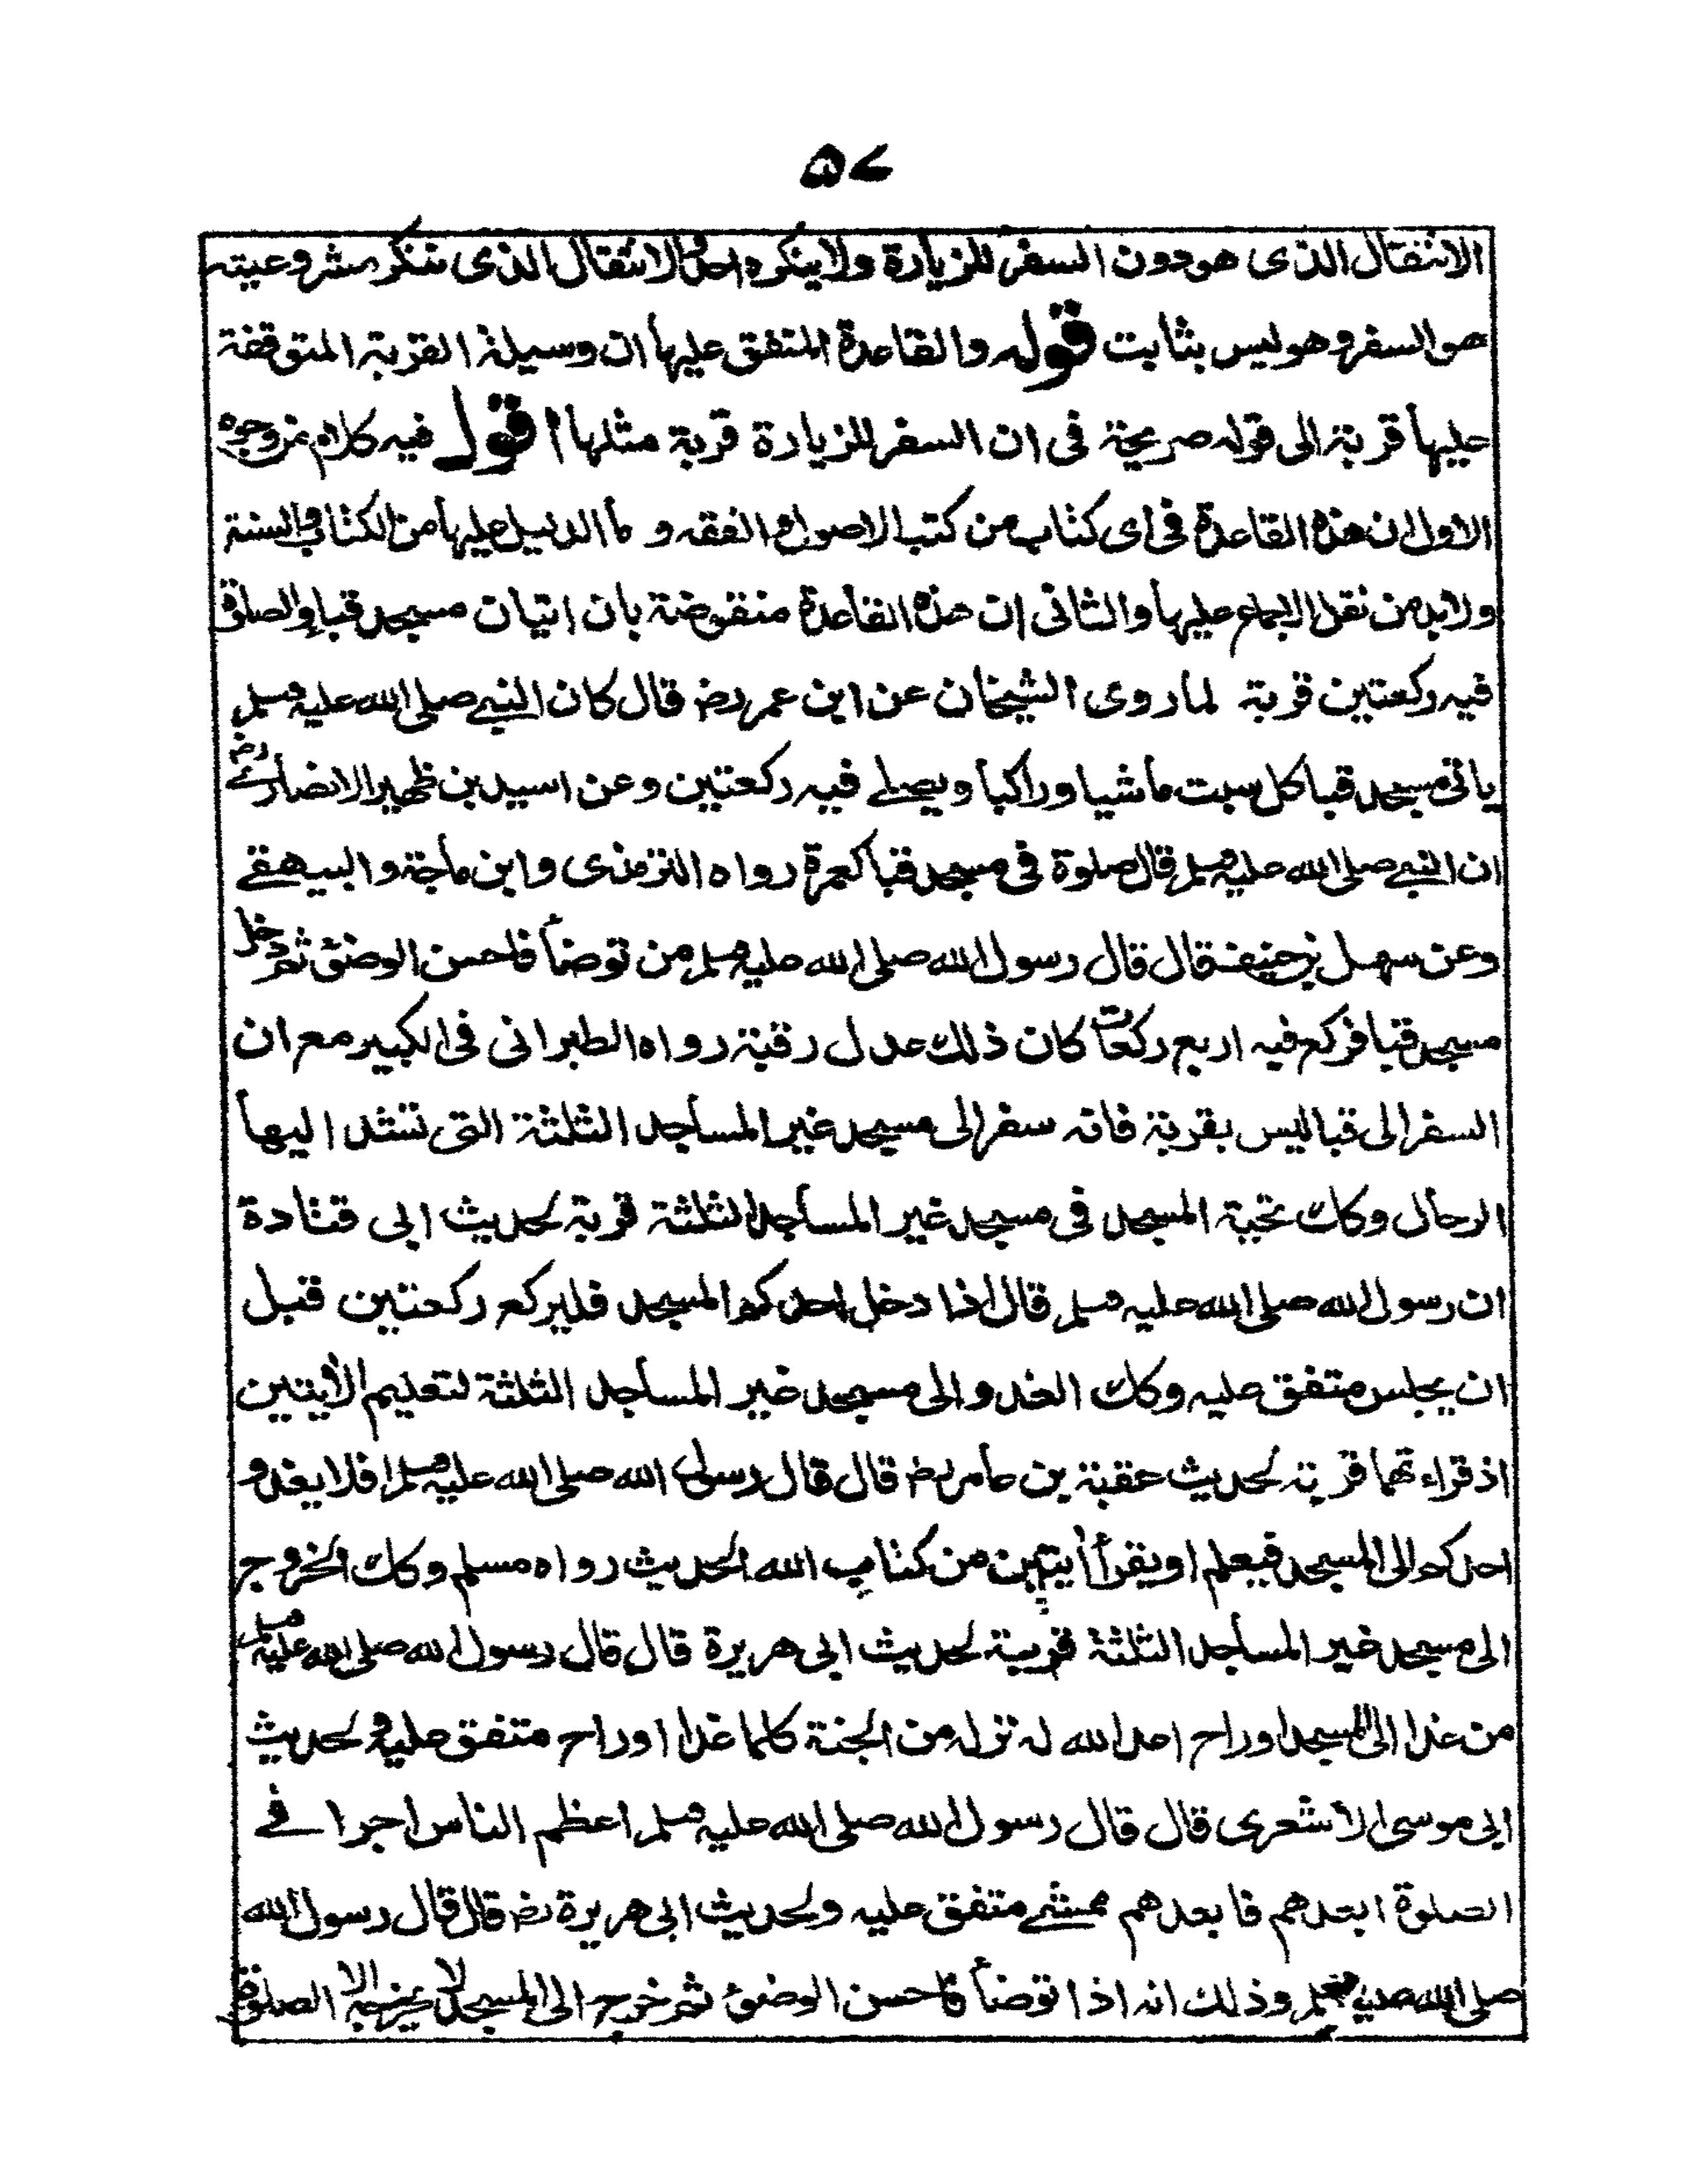 ۵۷
الانتقال الذى هو دون السفر للزيارة ولا ينكره احد والانتقال الذى ننكر مشروعيته
هو السفر و هو ليس بثابت قوله والقاعدة المتفق عليها ان وسيلة القربة المتوقفة
عليها قربة الى قوله صريحة فى ان السفر للزيارة قربة مثلها اقول فيه كلام من وجوه
الاول ان هذه القاعدة فى اى كتاب من كتب الاصول والفقه و ما الدليل عليها من الكتاب والسنة
ولا بد من نقل الاجماع عليها والثانى ان هذه القاعدة منقوضة بان اتيان مسجد قبا والصلوة
فيه ركعتين قربة لما روى الشيخان عن ابن عمر رض قال كان النبى صلى الله عليه وسلم
ياتى مسجد قبا كل سبت ماشيا وراكبا ويصلى فيه ركعتين وعن اسيد بن ظهير الانصارى رض
ان النبى صلى الله عليه وسلم قال صلوة فى مسجد قبا كعمرة رواه الترمذى وابن ماجة والبيهقى
وعن سهل بن حنيف قال قال رسول الله صلى الله عليه وسلم من توضأ فاحسن الوضوء ثم دخل
مسجد قبا فركع فيه اربع ركعات كان ذلك عدل رقبة رواه الطبرانى فى الكبير مع ان
السفر الى قبا ليس بقربة فانه سفر الى مسجد غير المساجد الثلثة التى تشد اليها
الرحال وكك تحية المسجد فى مسجد غير المساجد الثلثة قربة لحديث ابى قتادة
ان رسول الله صلى الله عليه وسلم قال اذا دخل احدكم المسجد فليركع ركعتين قبل
ان يجلس متفق عليه وكك الغدو الى مسجد غير المساجد الثلثة لتعليم الأيتين
اذ قراءتهما قربة لحديث عقبة بن عامر رض قال قال رسول الله صلى الله عليه وسلم افلا يغدو
احدكم الى المسجد فيعلم او يقرأ أيتين من كتاب الله الحديث رواه مسلم وكك الخروج
الى مسجد غير المساجد الثلثة قربة لحديث ابى هريرة قال قال رسول الله صلى الله عليه وسلم
من غدا الى المسجد او راح اعد الله له نزله من الجنة كلما غدا او راح متفق عليه ولحديث
ابى موسى الاشعرى قال قال رسول الله صلى الله عليه وسلم اعظم الناس اجرا فى
الصلوة ابعدهم فابعدهم ممشى متفق عليه ولحديث ابى هريرة رض قال قال رسول الله
صلى الله عليه وسلم وذلك انه اذا توضأ فاحسن الوضوء ثم خرج الى المسجد لا يخرجه الا الصلوة